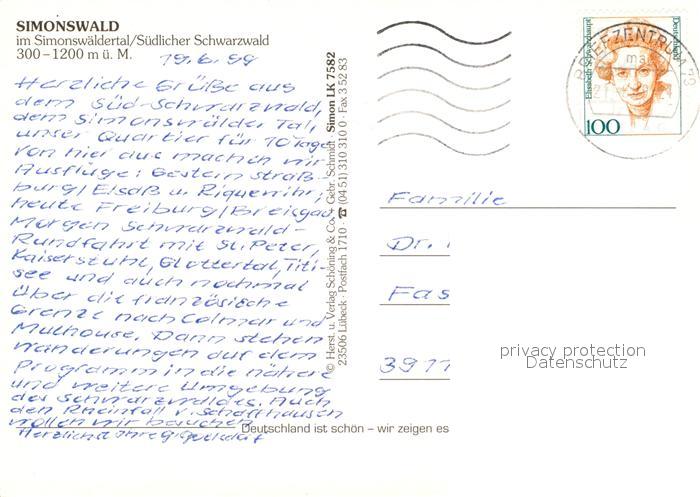 SIMONSWALD
im Simonswäldertal/Südlicher Schwarzwald
300–1200 m ü. M.
19.6.99
Herzliche Grüße aus
dem Süd-Schwarzwald,
dem Simonswälder Tal,
unser Quartier für 10 Tage
von hier aus machen wir
Ausflüge: Gestern Straß-
burg/Elsaß u. Riquewihr;
heute Freiburg/Breisgau
Morgen Schwarzwald-
Rundfahrt mit St. Peter,
Kaiserstuhl, Glottertal, Titi-
see und auch nochmal
über die französische
Grenze nach Colmar und
Mulhouse. Dann stehen
Wanderungen auf dem
Programm in die nähere
und weitere Umgebung
des Schwarzwaldes. Auch
den Rheinfall v. Schaffhausen
wollen wir besuchen
Herzlichst Ihre
© Herst. u. Verlag Schöning & Co. + Gebr. Schmidt Simon LK 7582
23506 Lübeck · Postfach 1710 · ☎ (04 51) 310 310 0 · Fax 3 52 83
Deutschland ist schön – wir zeigen es
BRIEFZENTRUM 79
Elisabeth Schwarzhaupt
Deutschland
100
Familie
Dr.
Fas
3911
privacy protection
Datenschutz